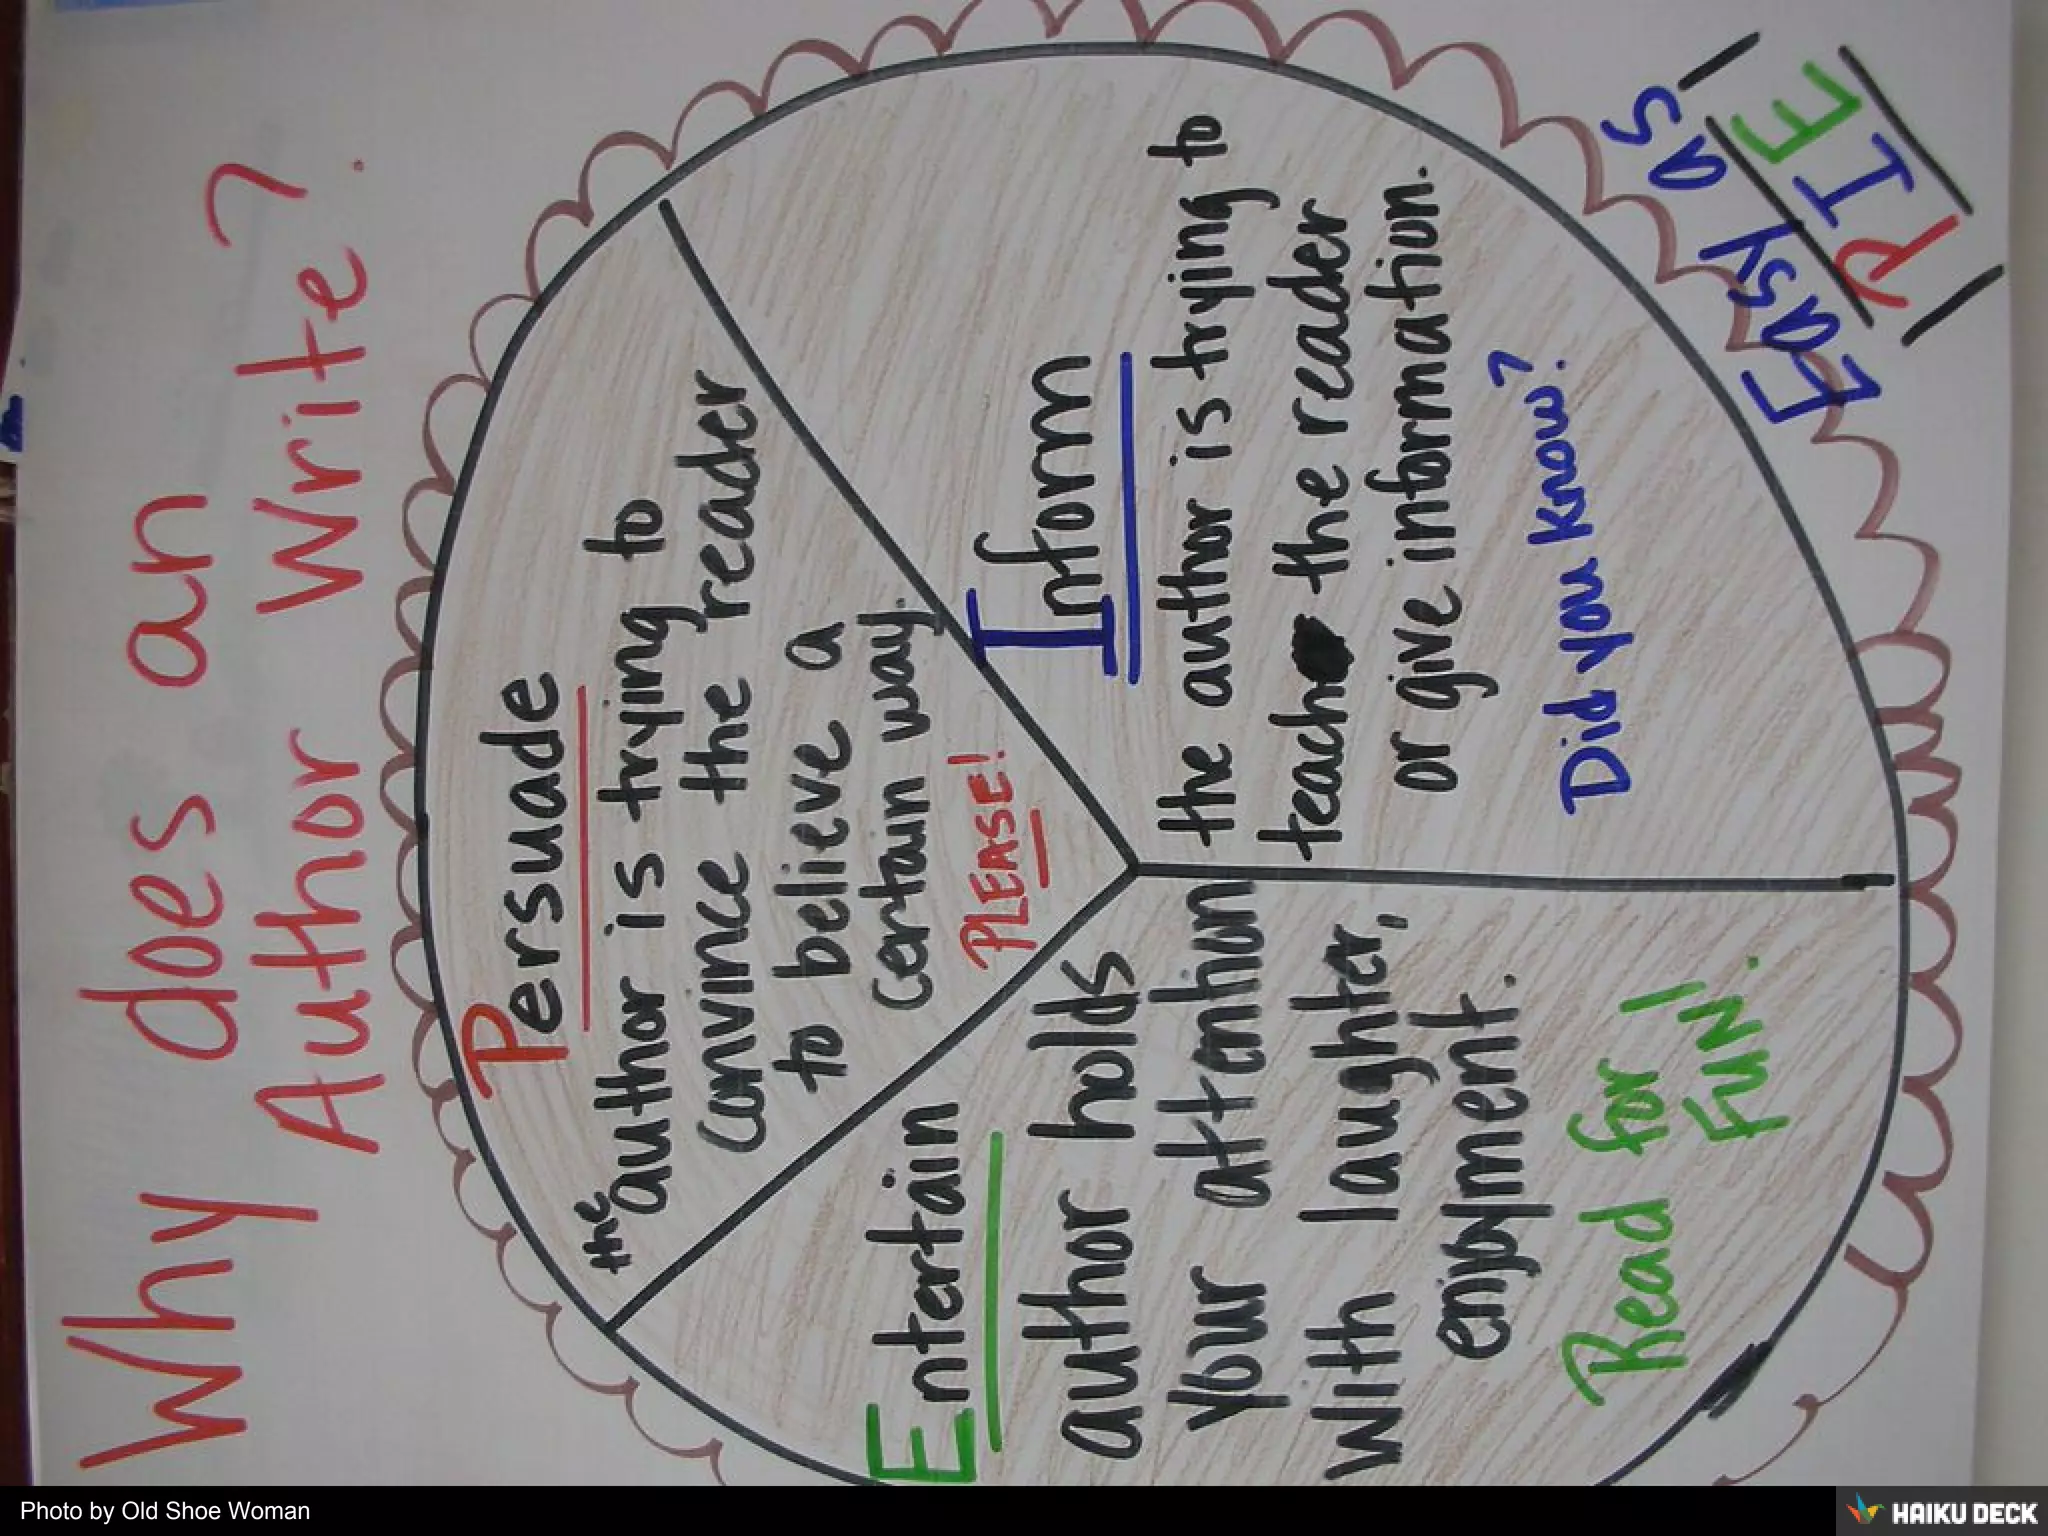 Why does an
Author Write?
Persuade
the author is trying to
convince the reader
to believe a
certain way.
PLEASE!
Inform
the author is trying to
teach the reader
or give information.
Did you know?
Entertain
author holds
your attention
with laughter,
enjoyment.
Read for
FUN!
Easy as
PIE
Photo by Old Shoe Woman
HAIKU DECK